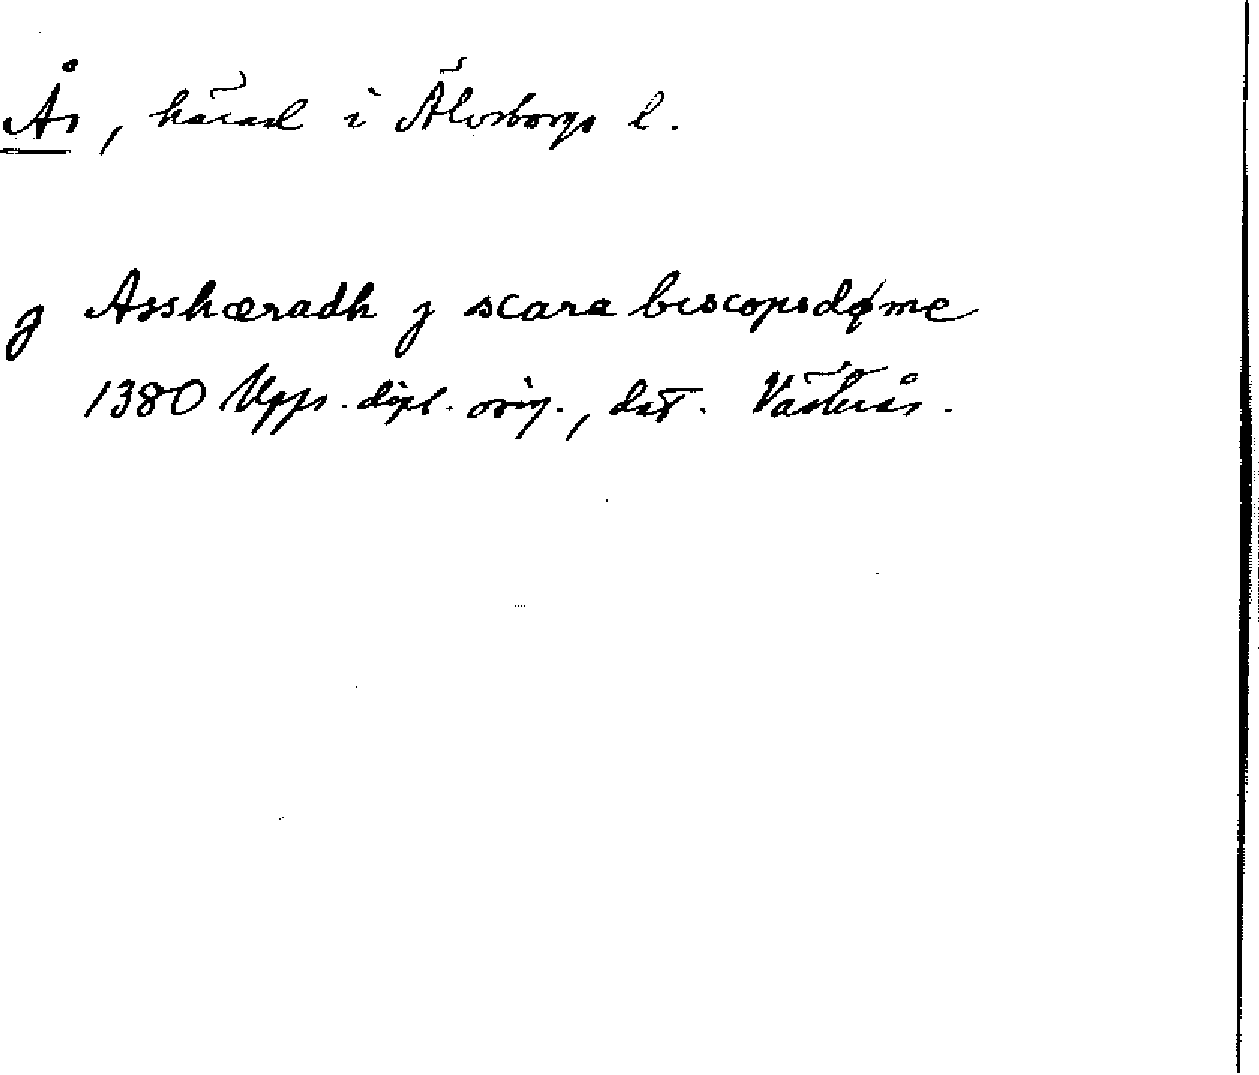 Ås, härad i Älvsborgs l.
j Asshæradh j scara biscopsdøme
1380 Upps. dipl. orig., dat. Västerås.